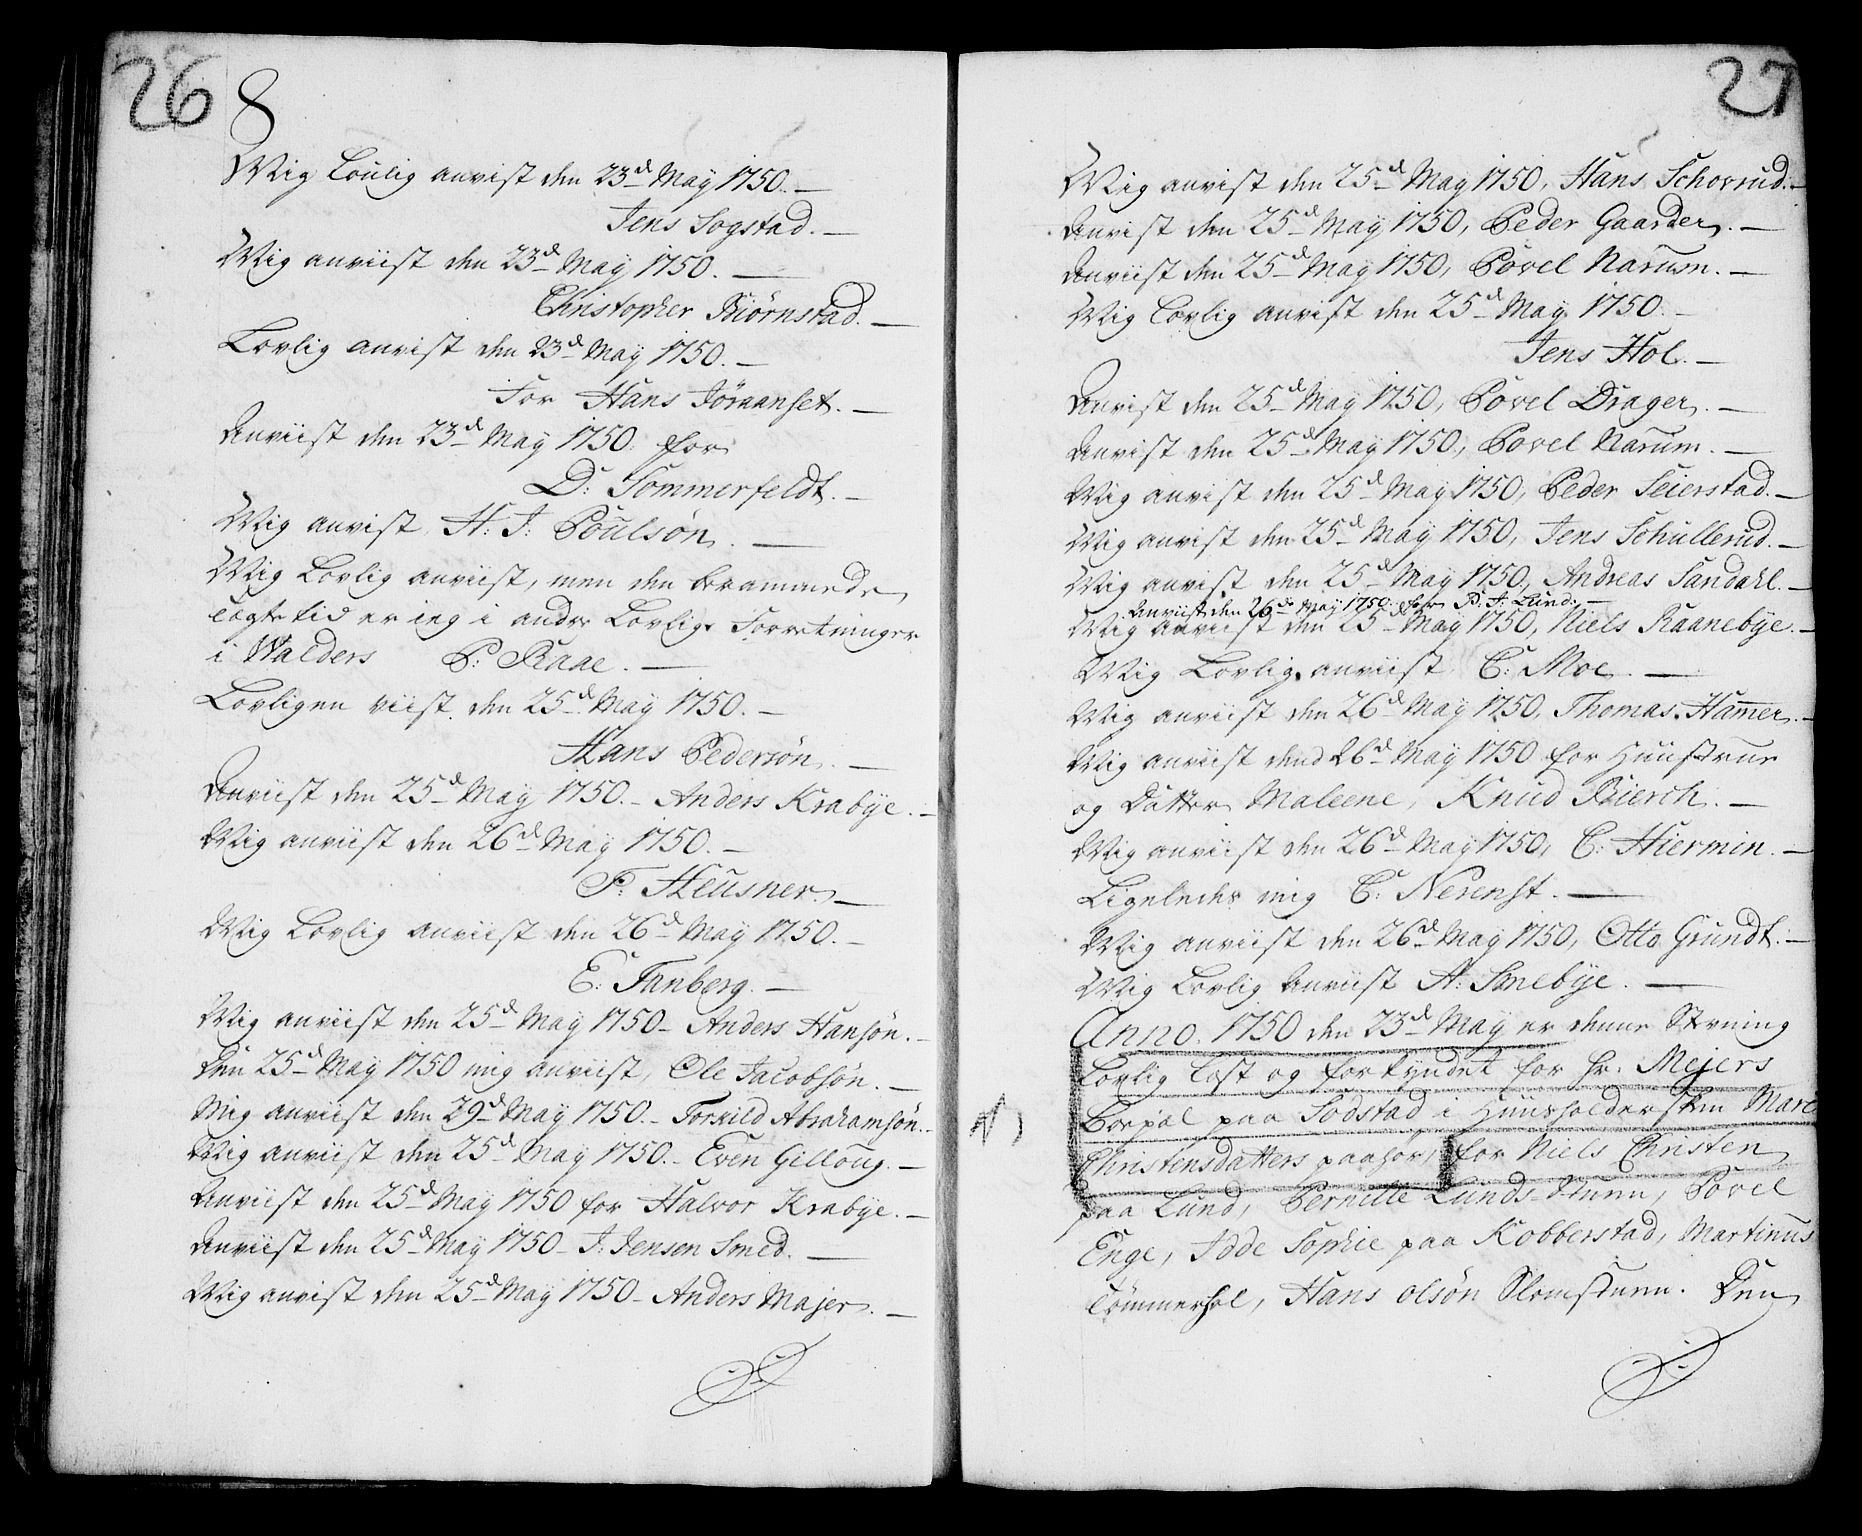 26
8
Mig Loulig anvist den 23d May 1750.
Jens Sogstad.
Mig anviist den 23d May 1750.
Christopher Biørnstad.
Lovlig anvist den 23d May 1750.
For Hans Jøraanset.
Anviist den 23d May 1750. for
D: Sommerfeldt.
Mig anvist H: J: Poulsøn.
Mig Lovlig anviist, men den berammede
tægte tid er ieg i andre Lovlige Forretninger
i Walders P: Raae.
Lovligen viist den 25d May 1750.
Hans Pedersøn.
Anviist den 25d May 1750. Anders Krabÿe.
Mig anviist den 26d May 1750.
F: Heusner.
Mig Lovlig anviist den 26d May 1750.
E: Tanberg.
Mig anviist den 25d May 1750 Anders Hansøn.
Den 25d May 1750 mig anviist, Ole Jacobsøn.
Mig anviist den 29d May 1750. Torkild Abrahamsøn.
Mig anviist den 25d May 1750. Even Gilloug.
Anviist den 25d May 1750 for Halvor Krabÿe.
Anviist den 25d May 1750 J: Jensen Smed.
Mig anvist den 25d May 1750 Anders Majer.
27
Mig anvist den 25d May 1750, Hans Schorrud.
Anvist den 25d May 1750, Peder Gaarder.
Anviist den 25d May 1750, Povel Narum.
Mig Lovlig anvist den 25d May 1750.
Jens Hol.
Anvist den 25d May 1750, Povel Drager.
Anvist den 25d May 1750, Povel Narum.
Mig anvist den 25d May 1750, Peder Seierstad.
Mig anvist den 25d May 1750, Jens Schullerud.
Mig anvist den 25d May 1750, Andreas Sandahl.
Anviist den 26de May 1750 for P: J: Lund:
Mig anviist den 25d May 1750, Niels Raanebÿe.
Mig Lovlig anviist C: Moe.
Mig anviist den 26d May 1750, Thomas Hamer.
Mig anviist dend 26d May 1750 for Huustrue
og Datter Maleene, Knud Bierch.
Mig anviist den 26d May 1750, C: Hiermin.
Ligeledes mig C: Nerenst.
Mig anviist den 26d May 1750, Otto Grundt.
Mig Lovlig Anviist A: Smebÿe.
Anno. 1750 den 23d May er denne Stevning
Lovlig læst og forkyndet for hr. Mejers
Boepæl paa Sodstad i Huusholdersken Mare
Christensdatters paahør, for Niels Christen
paa Lund, Pernille Lunds Stuen, Povel
Enge, Idde Sophie paa Kobberstad, Martinus
Tømmerhol, Hans olsøn Slomstuen. Den